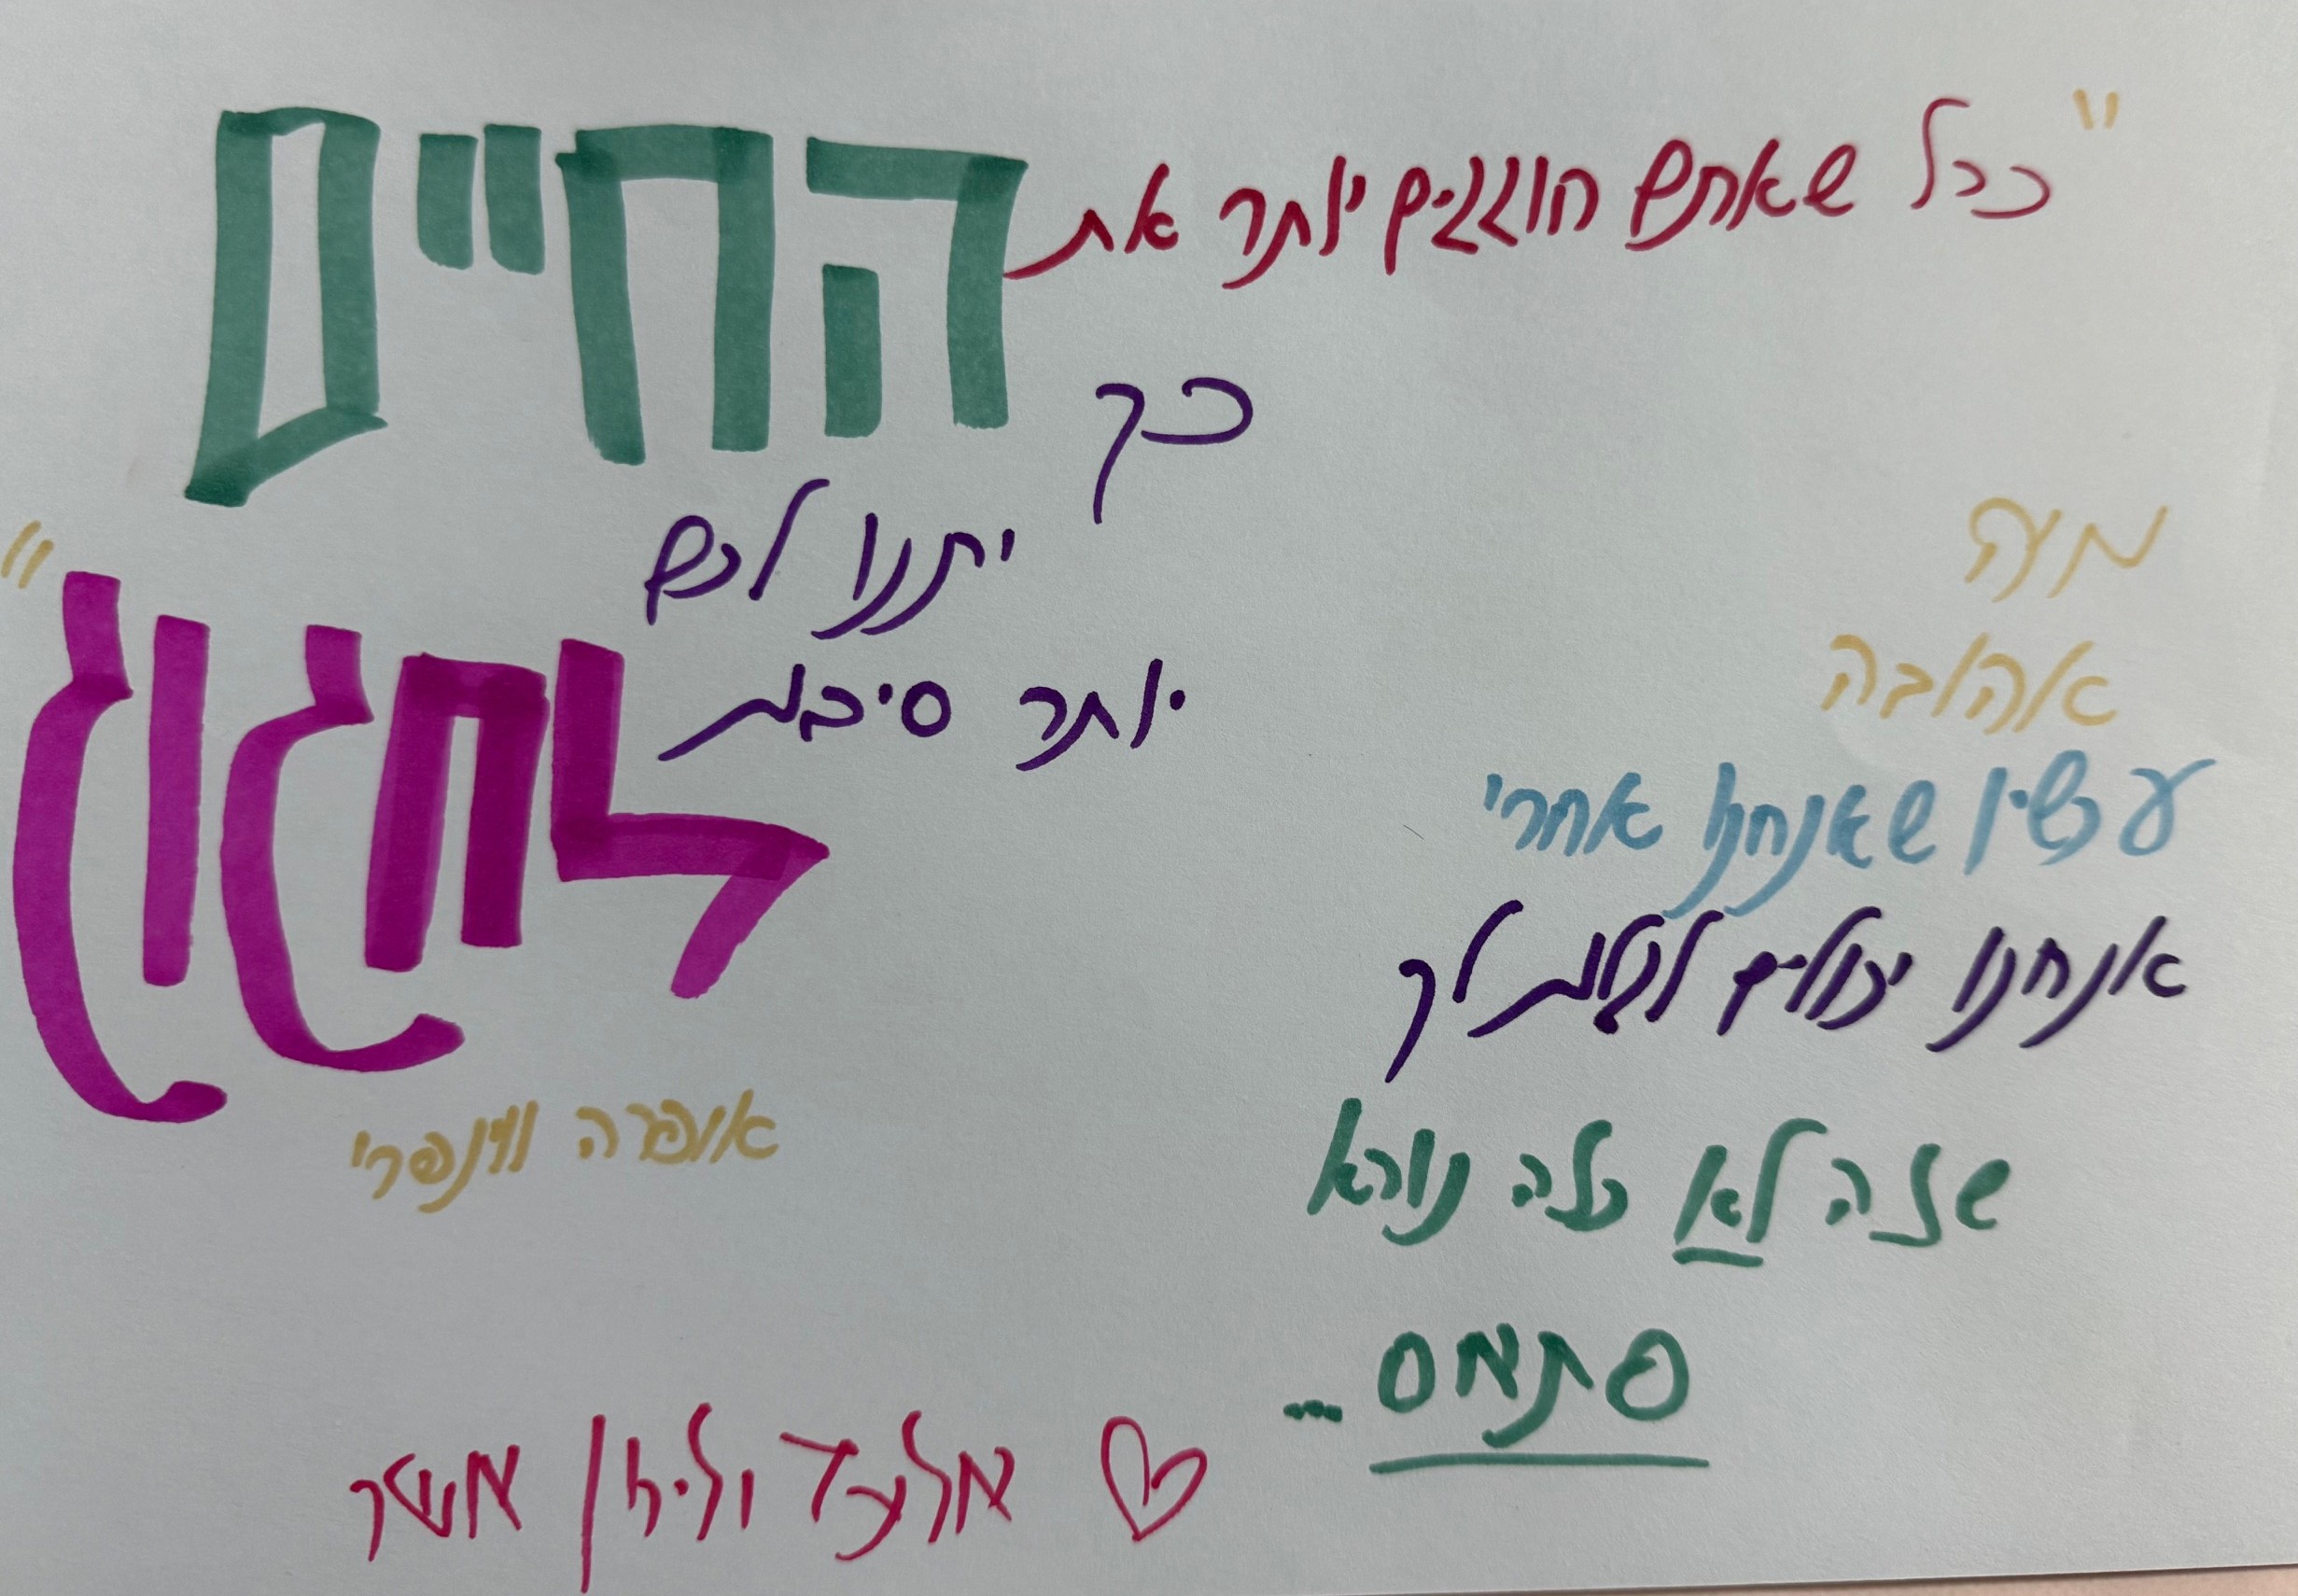 "ככל שאתם חוגגים יותר את החיים
כך
יתנו לכם
יותר סיבות
לחגוג"
אופרה ווינפרי
אהובה
עכשיו שאנחנו אחרי
אנחנו יכולים לגלות לך
שזה לא כזה נורא
פתאום...
♡ אלעד ולירן אשר